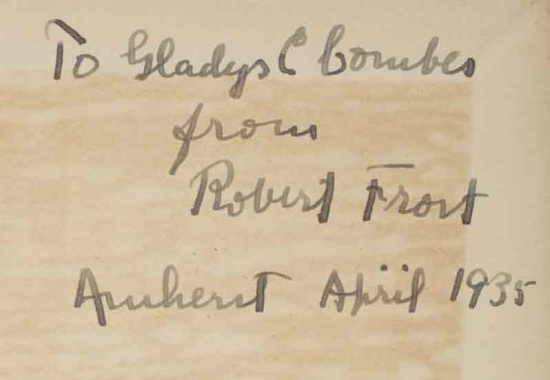 To Gladys C Combes
from
Robert Frost
Amherst April 1935